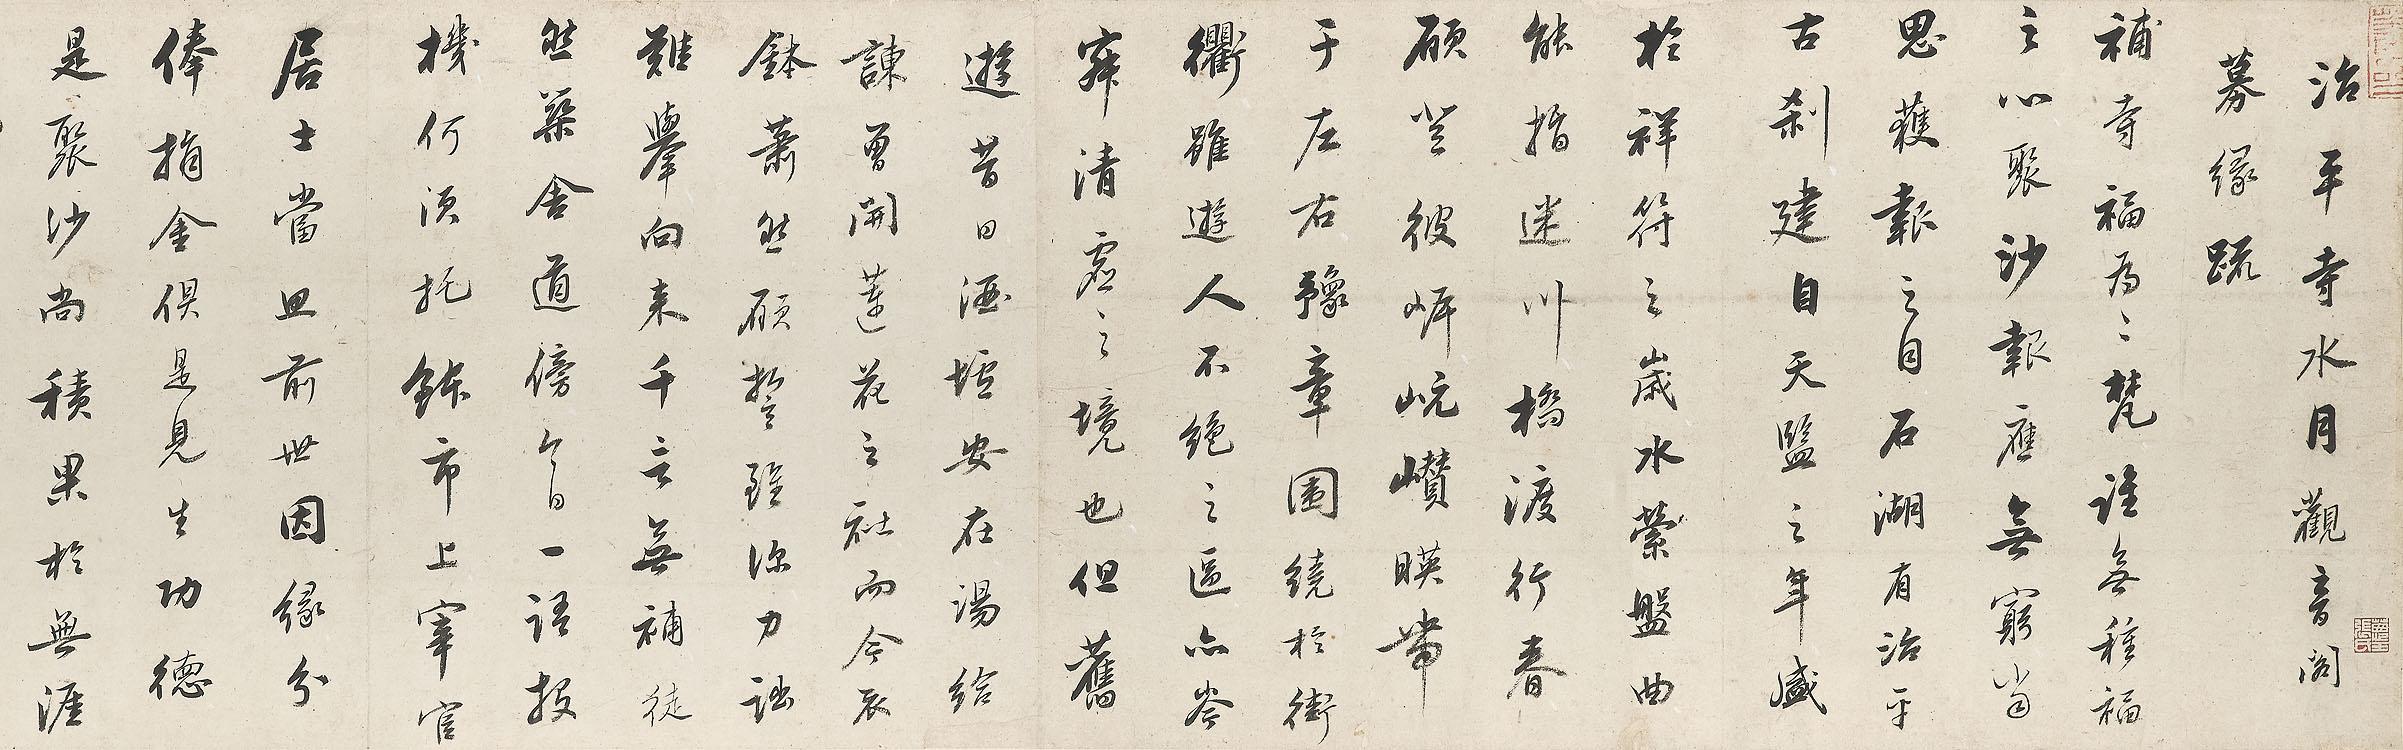 治平寺水月觀音閣
募緣疏
補寺福為之梵誰無種福
之心聚沙報應無窮當
思獲報之日石湖有治平
古刹建自天監之年盛
於祥符之歲水縈盤曲
能指迷川橋渡行春
願登彼岸岏巑暎帶
于左右豫章圍繞於衝
衢雖遊人不絕之區亦岑
寂清虛之境也但舊
遊昔日酒壚安在湯給
諫曾開蓮花之社而今衣
鉢蕭然願誓雖深力詘
難舉向來千言無補徒
然築舍道傍今日一語投
機何須托鉢市上宰官
居士當思前世因緣分
俸捐金俱是見生功德
是聚沙尚積果於無涯